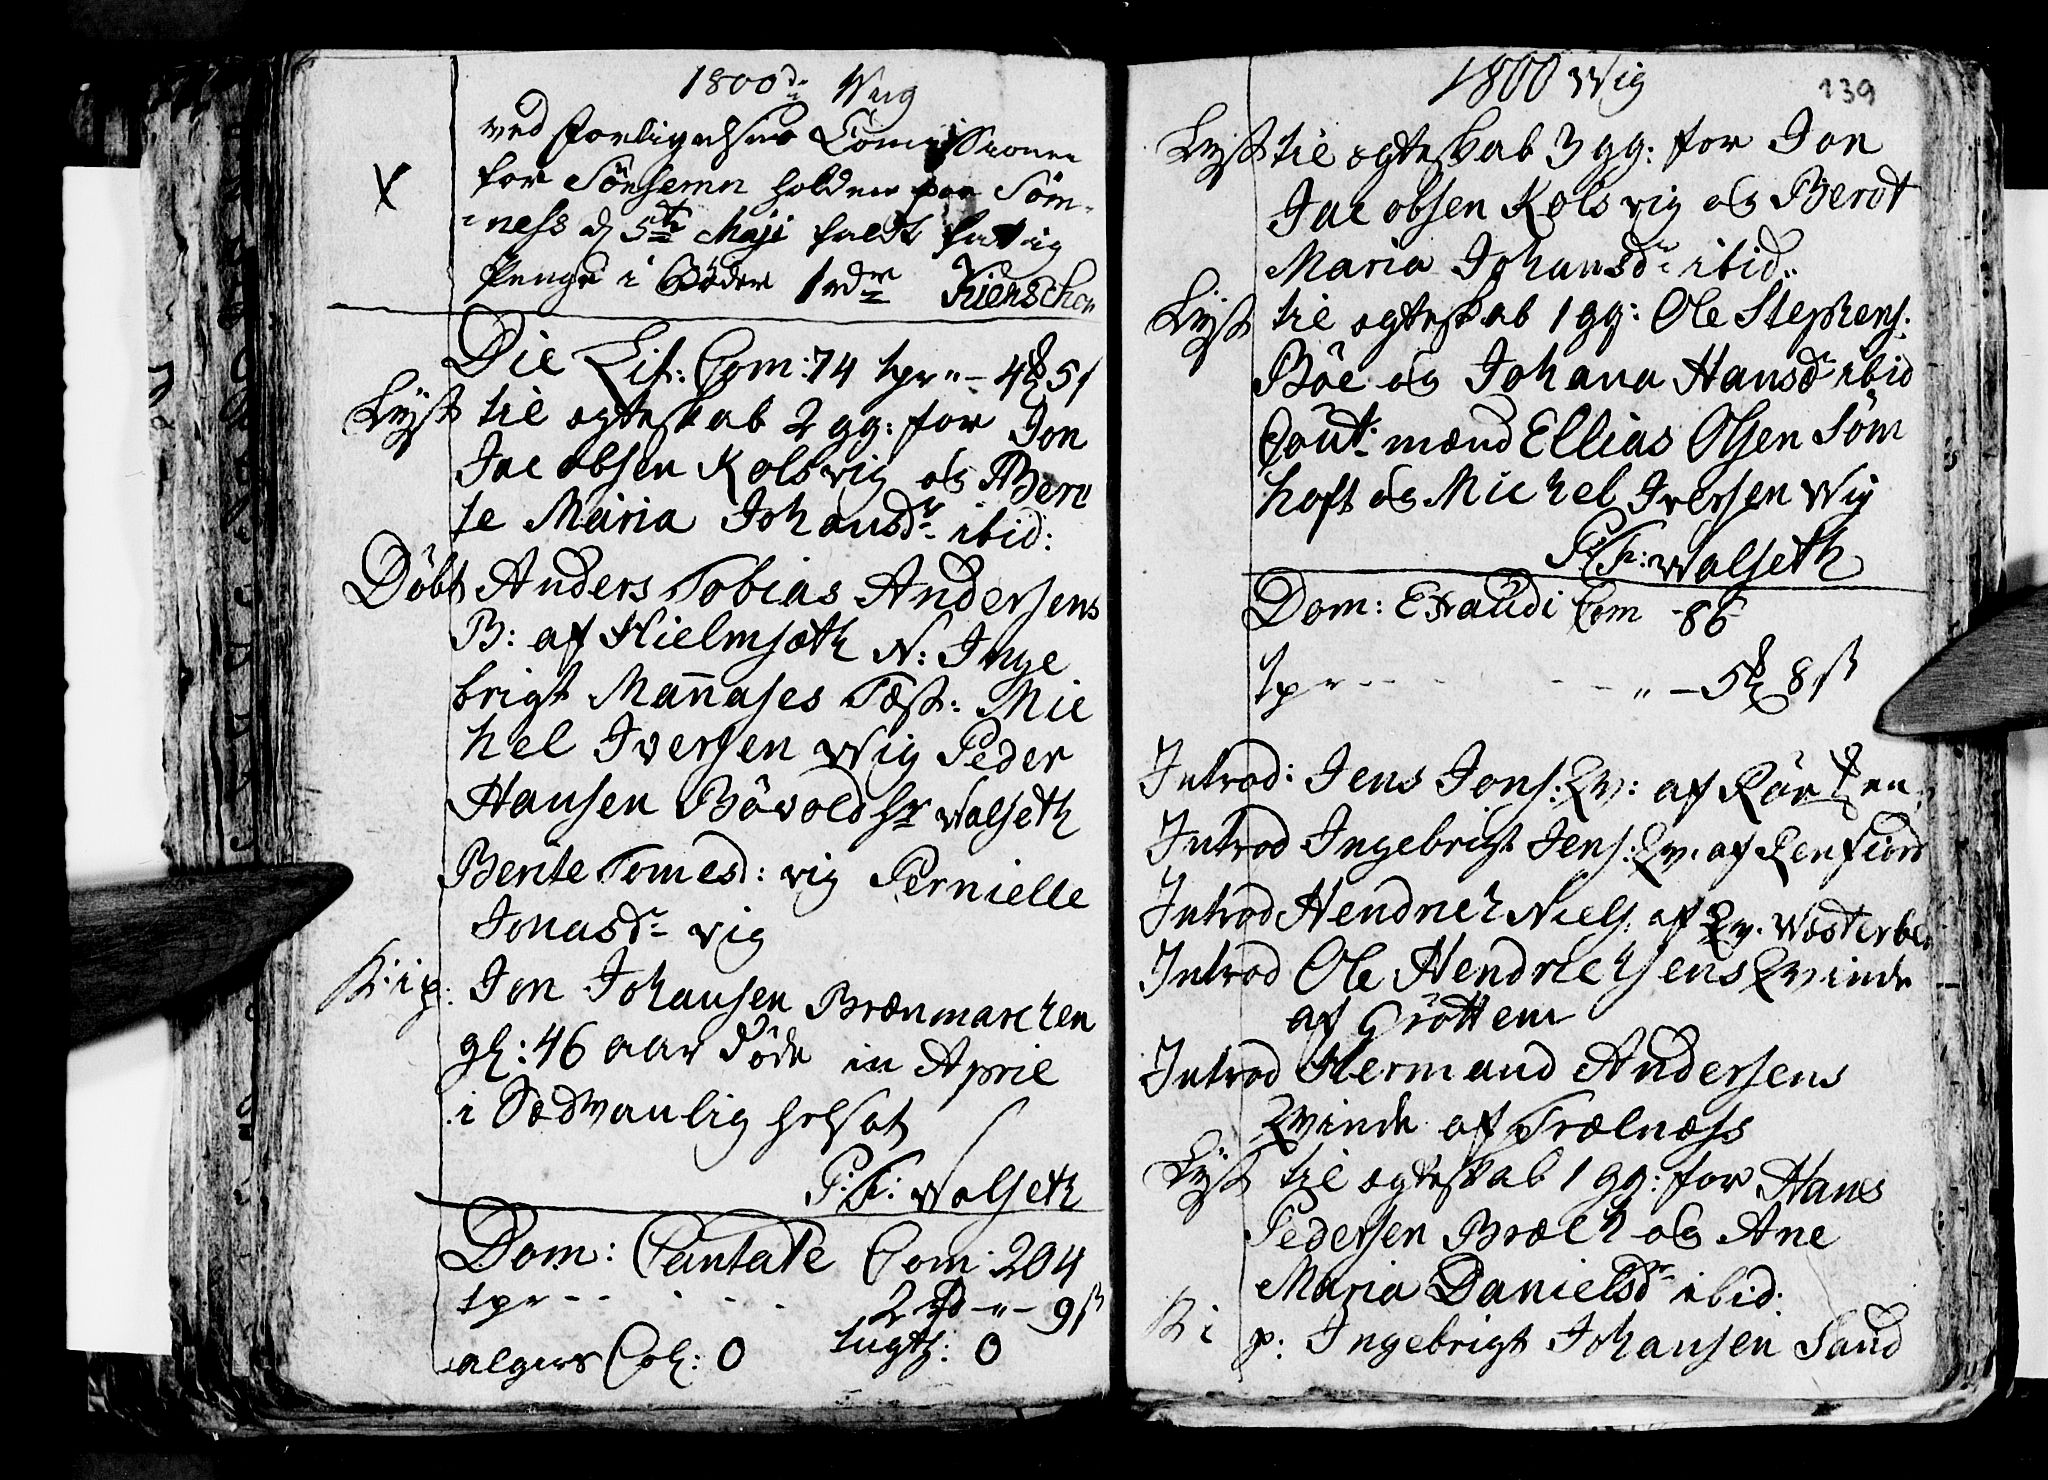 1800de Wug
ved Forligelses Comissionen
for Sönhemn holden paa Söm-
=ness d 5te Maji faldt fattig
Penge i Böder 1 rdr Kierschou
Die Lit: Com: 74 tpr " - 4 5 s
Lyst til egteskab 2 gg: for Jon
Jacobsen Kolsvig og Beru
te Maria Johansdr ibid:
Döbt Anders Tobias Andersens
B: af Hielmsæth N: Inge
brigt Mannases Tæst: Mic
hel Iversen Wig Peder
Hansen Bövold hr Walseth
Berite Tomesd: vig Pernielle
Jonasdr vig
K: i p: Jon Johansen Brænmarchen
gl: 46 aar døde in April
i Sædvanlig helsot
P: F: Walseth
Dom: Cantate Com: 204
tpr - - - - - 2 rd - " - 9 s
algiers Col: 0 tugth: 0
1800 Wig 139
Lyst til egteskab 3 gg: for Jon
Jacobsen Kolsvig og Berdt
Maria Johansdr ibid:
Lyst til egteskab 1 gg: Ole Stephens:
Böe og Johana Hansdr ibid
Cout: mænd Ellias Olsen Söm
hoft og Michel Iversen Wig
P: F: Walseth
Dom: Exaudi Com - 86
tpr - - - - - " - 5 8 s
Introd: Jens Jons: Qv: af Rör en:
Introd Ingebrigt Jens: Qv. af Renfiord
Introd Hendrich Niels: af Qv. Wæsterbe
Introd Ole Hendrichsens Qvinde
af Gröttem
Introd Hermand Andersens
Qvinde af Trælnæss
Lyst til egteskab 1 gg: for Hans
Pedersen Bræch og Ane
Maria Danielsdr ibid:
K i p: Ingebrigt Johansen Sand